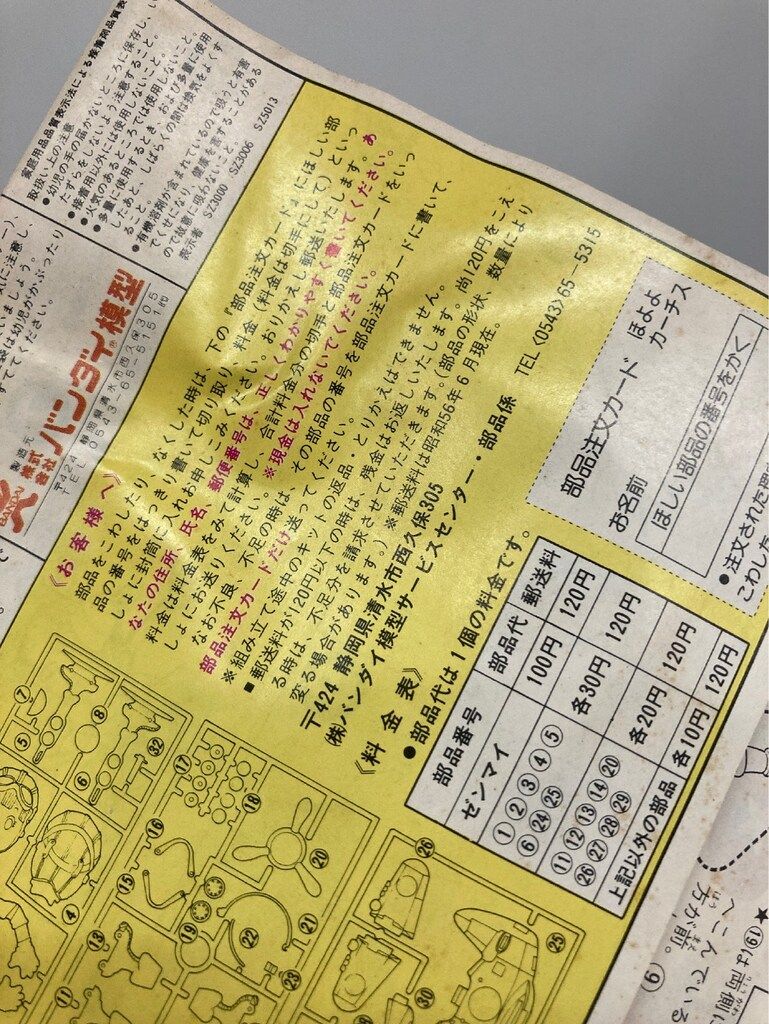 家庭用品品質表示法による接着剤品質表
取扱い上の注意
●幼児の手の届かないところに保存し、い
たずらをしないよう注意すること。
●接着用以外には使用しないこと。
●火気のあるところでは使用しないこと。
●多量に使用するとき、および多量に使用
したあと、しばらくの間は換気をよくす
ること。
●有機溶剤が含まれているので吸うと有害
でくせになり、健康を害することがある
ので故意に吸わないこと。
表示者 SZ3000 SZ3006 SZ5013
気に注意し、
いましょう。
袋は幼児がかぶったり
すててください。
製造元
BANDAI
株式会社 バンダイ模型
〒424 静岡県清水市西久保305
TEL 0543-65-5151㈹
《お客様へ》
部品をこわしたり、なくした時は、下の『部品注文カード』にほしい部
品の番号をはっきり書いて切り取り、料金（料金は切手にして）といっ
しょに封筒に入れお申しこみください。おりかえし郵送いたします。あ
なたの住所、氏名、郵便番号は、正しくわかりやすく書いてください。
料金は料金表をみて計算し、合計料金分の切手と部品注文カードをいっ
しょにお送りください。※現金は入れないでください。
なお不良、不足の時は、その部品の番号を部品注文カードに書いて、
部品注文カードだけ送ってください。
※組み立て途中のキットの返品・とりかえはできません。
■郵送料が120円以下の時は、残金はお返しいたします。尚120円をこえ
る時は、不足分を請求させていただきます。部品の形状、数量により
変る場合があります。） ※郵送料は昭和56年6月現在。
〒424 静岡県清水市西久保305
㈱バンダイ模型サービスセンター・部品係 TEL〈0543〉65-5315
《料金表》
●部品代は1個の料金です。
部品番号 部品代 郵送料
ゼンマイ 100円 120円
①②③④⑤ ⑥㉔㉕ 各30円 120円
⑪⑫⑬⑭⑳ ㉖㉗㉘㉙ 各20円 120円
上記以外の部品 各10円 120円
部品注文カード ほよよ カーチス
お名前
ほしい部品の番号をかく
●注文された理
こわした
⑦
⑤
⑧
⑥
㉜
④
⑰
⑱
⑯
⑮
⑳
⑲
㉑
㉒
㉓
⑬
⑪
㉖
㉕
㉚
⑥
★⑲は両側に
へこんでいる
方が前。